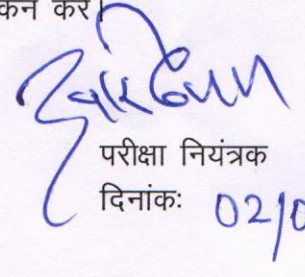 कन करें।
परीक्षा नियंत्रक
दिनांकः 02/0